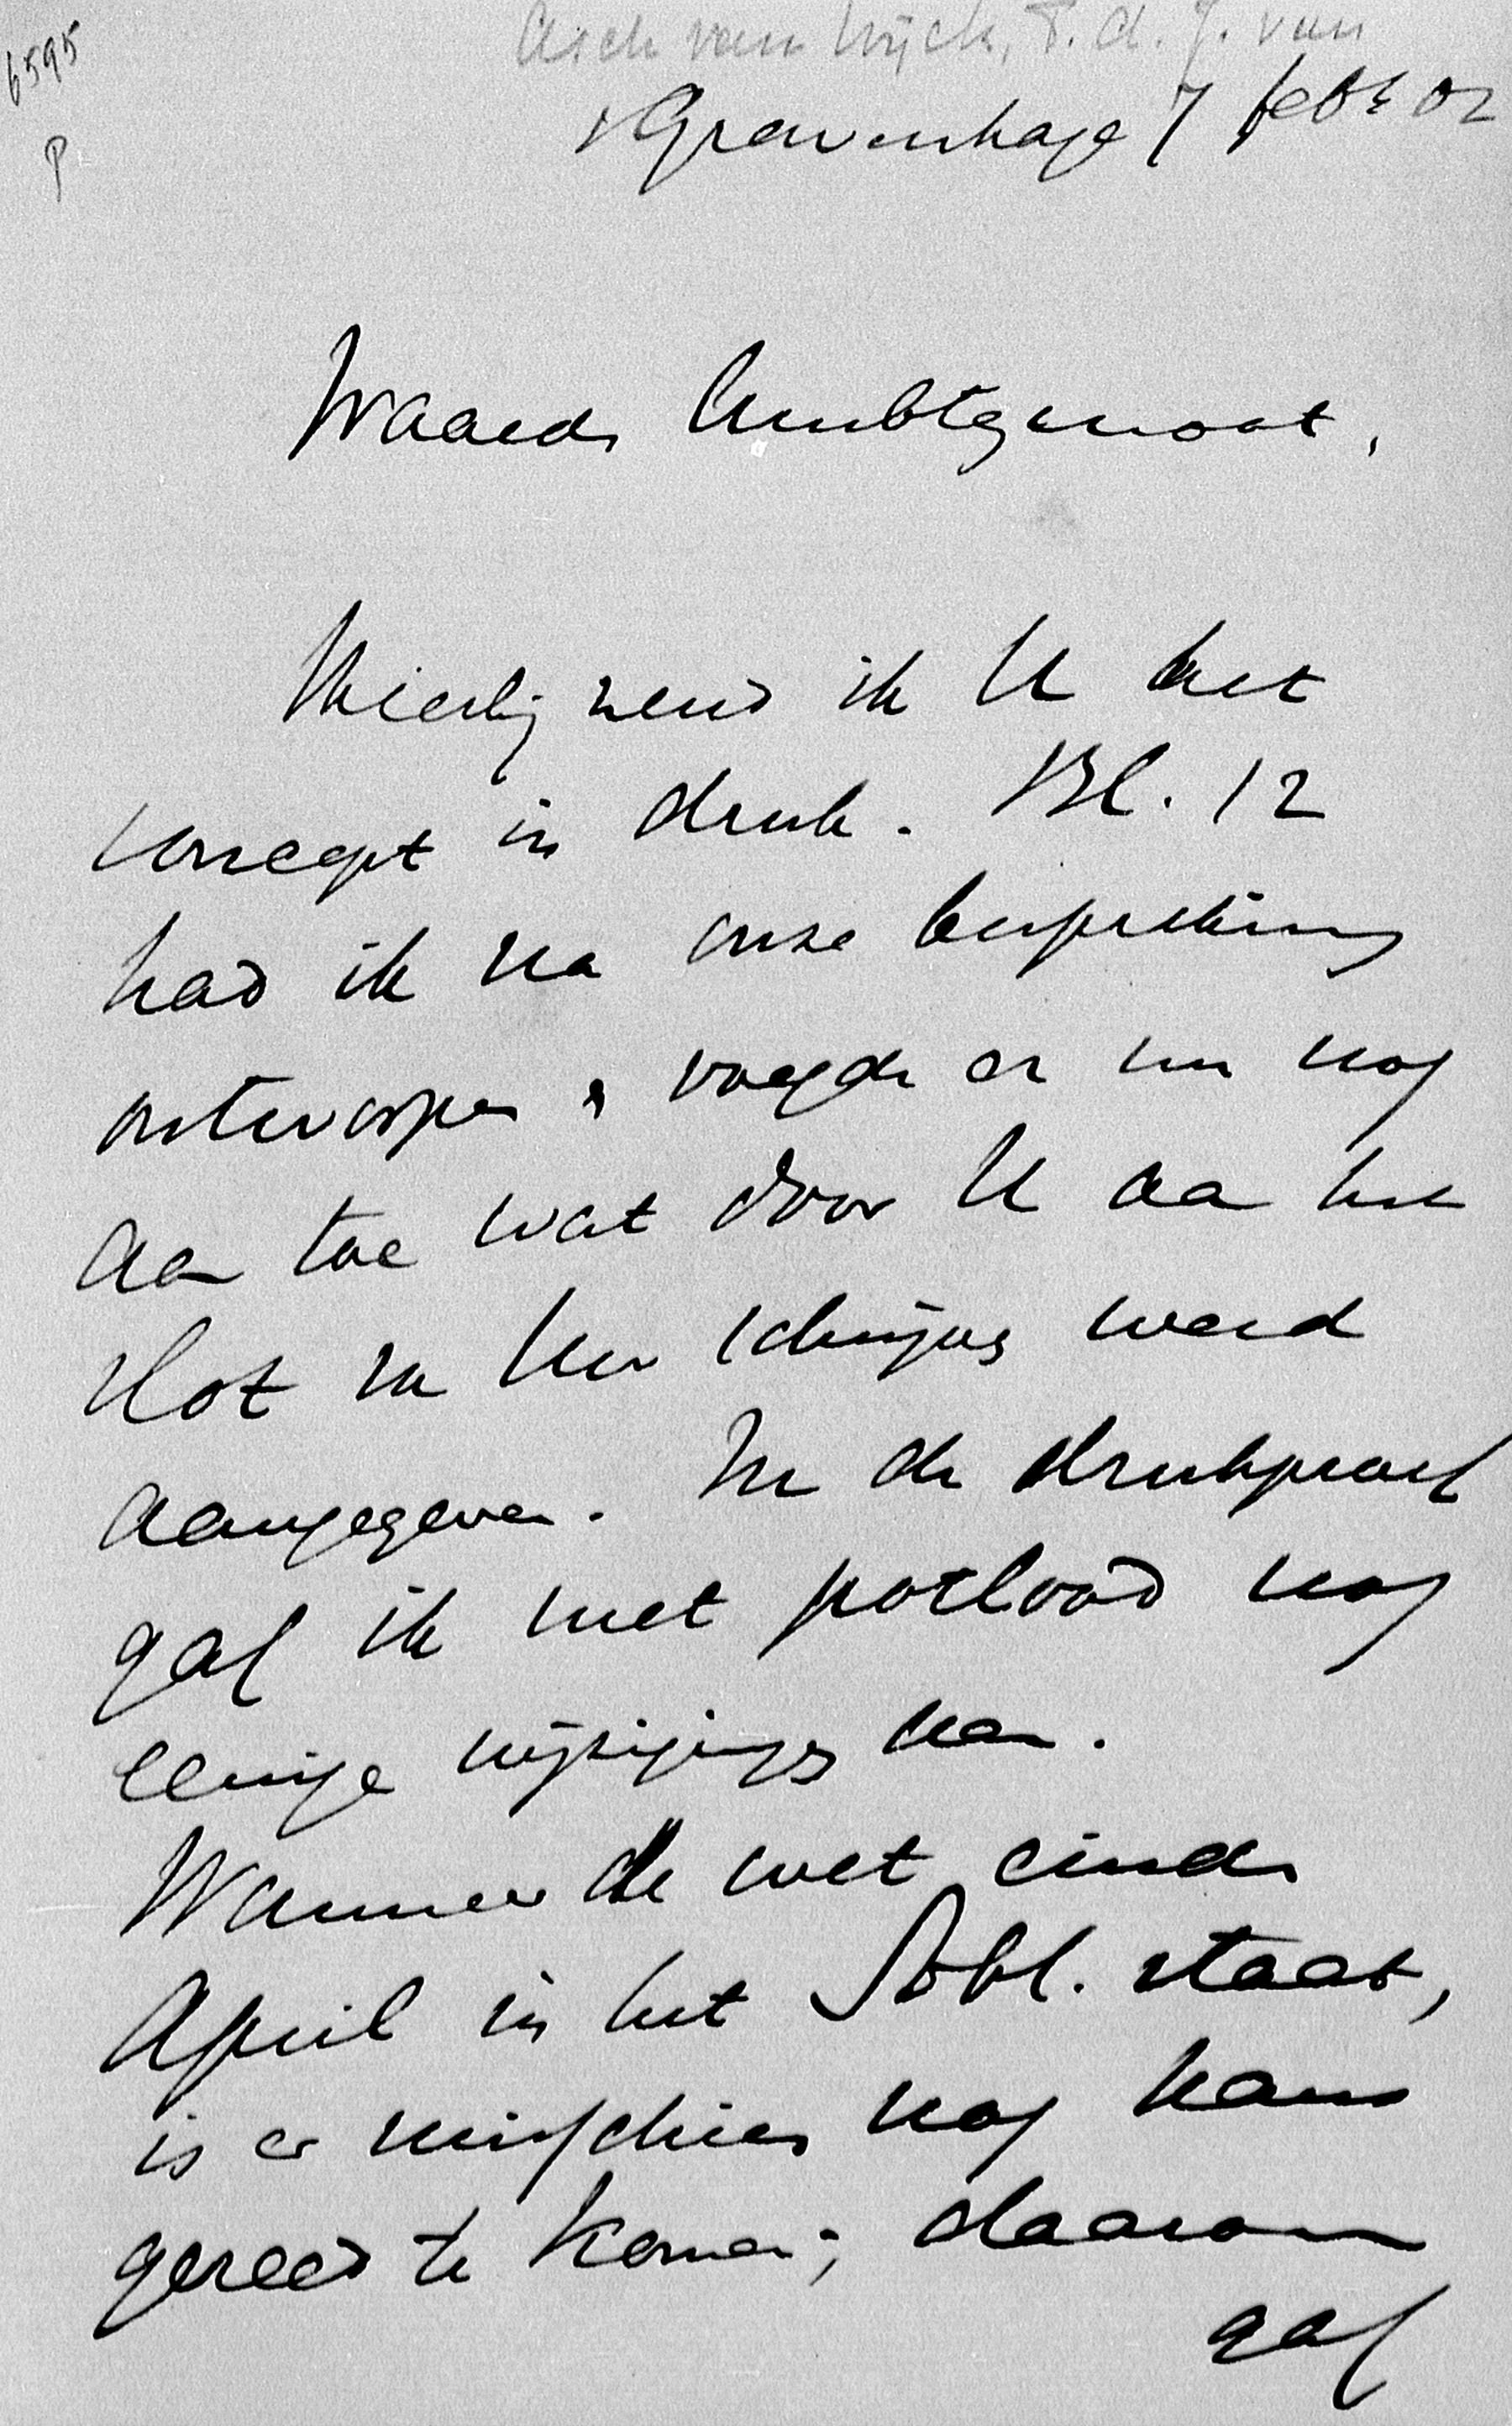 6595
P
Asch van Wijck, T. A. J. van
sGravenhage 7 febr 02
Waarde Ambtgenoot,
Hierbij zend ik U het
concept in druk. Bl. 12
had ik na onze bespreking
ontworpen & voegde er nu nog
aan toe wat door U aan het
slot van Uw schrijven werd
aangegeven. In de drukproef
gaf ik met potlood nog
eenige wijzigingen aan.
Wanneer de wet einde
April in het Stbl. staat,
is er misschien nog kans
gereed te komen; daarom
gaf